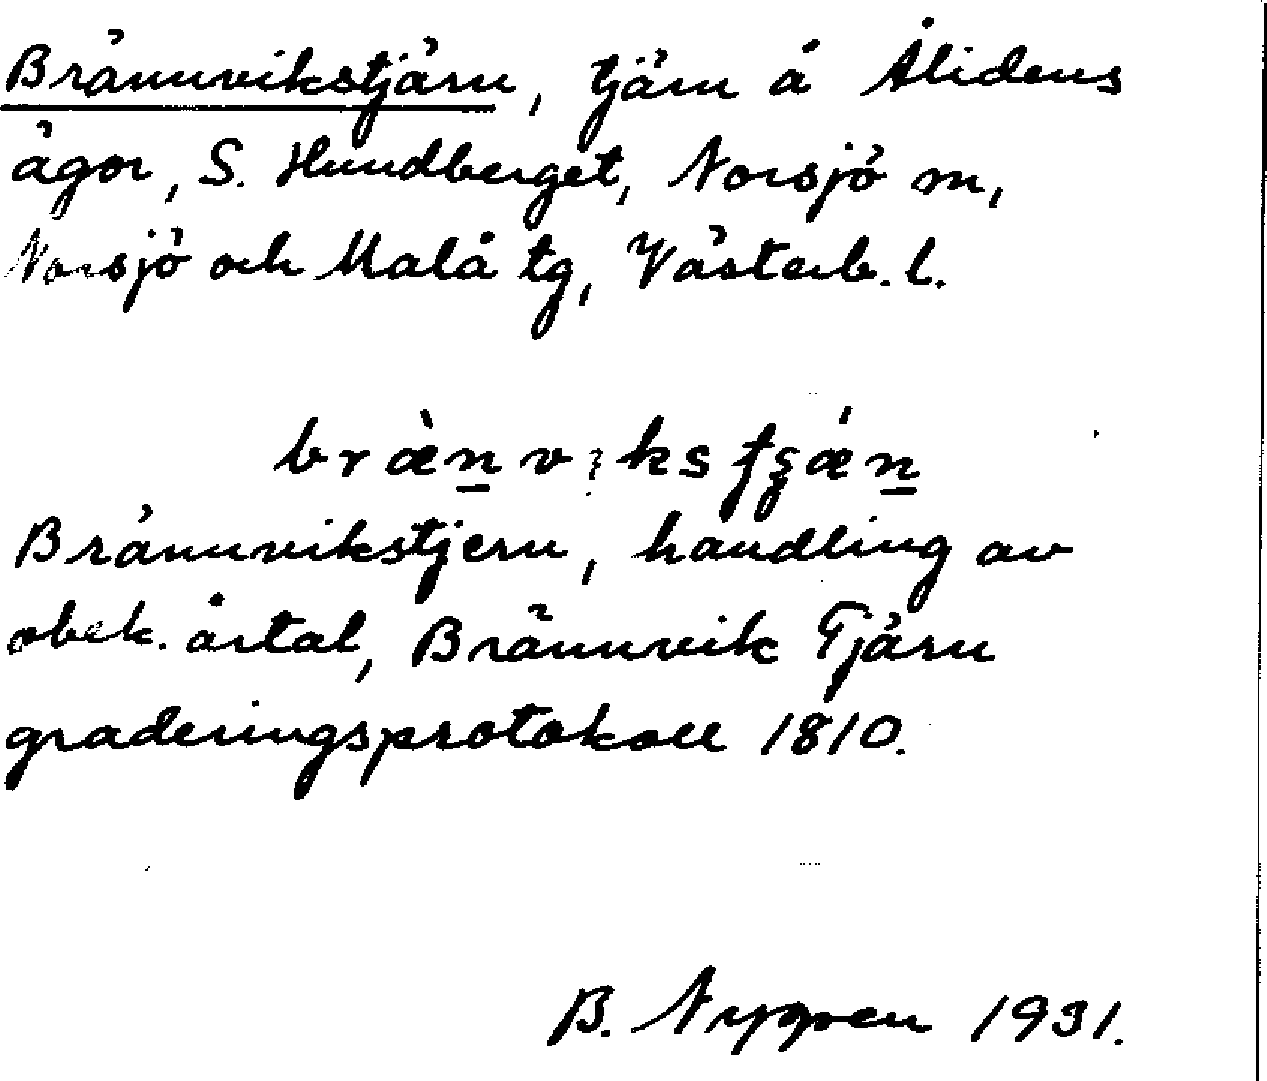 Brännvikstjärn, tjärn å Ålidens
ägor, S. Hundberget, Norsjö sn,
Norsjö och Malå tg, Västerb. l.
bræ̀n̲vıksʃʂǽn̲
Brännvikstjern, handling av
obek. årtal, Brännvik Tjärn
graderingsprotokoll 1810.
B. Nygren 1931.